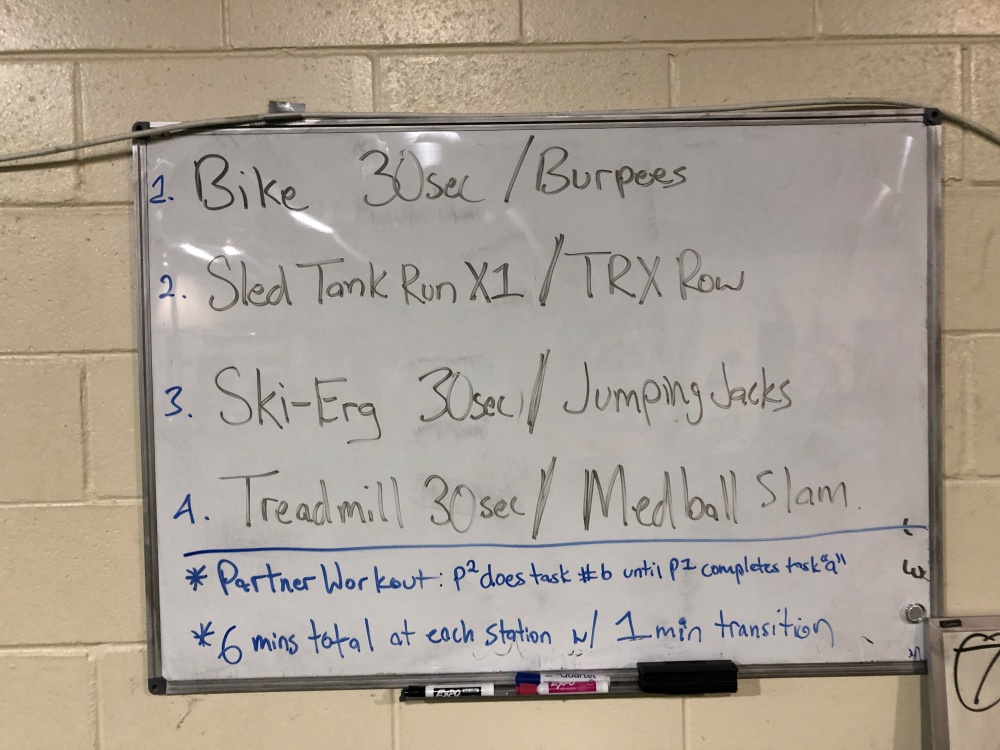 1. Bike 30sec / Burpees
2. Sled Tank Run X1 / TRX Row
3. Ski-Erg 30sec / Jumping Jacks
4. Treadmill 30sec / Medball Slam.
* Partner Workout: P2 does task #b until P1 completes task "a"
* 6 mins total at each station w/ 1 min transition
EXPO
Quartet
EXPO